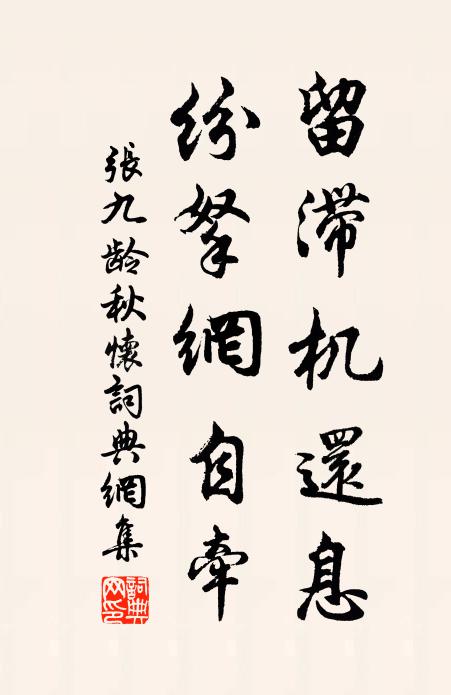 留滯机還息
紛拏網自牽
張九齡秋懷詞典網集
詞典网印